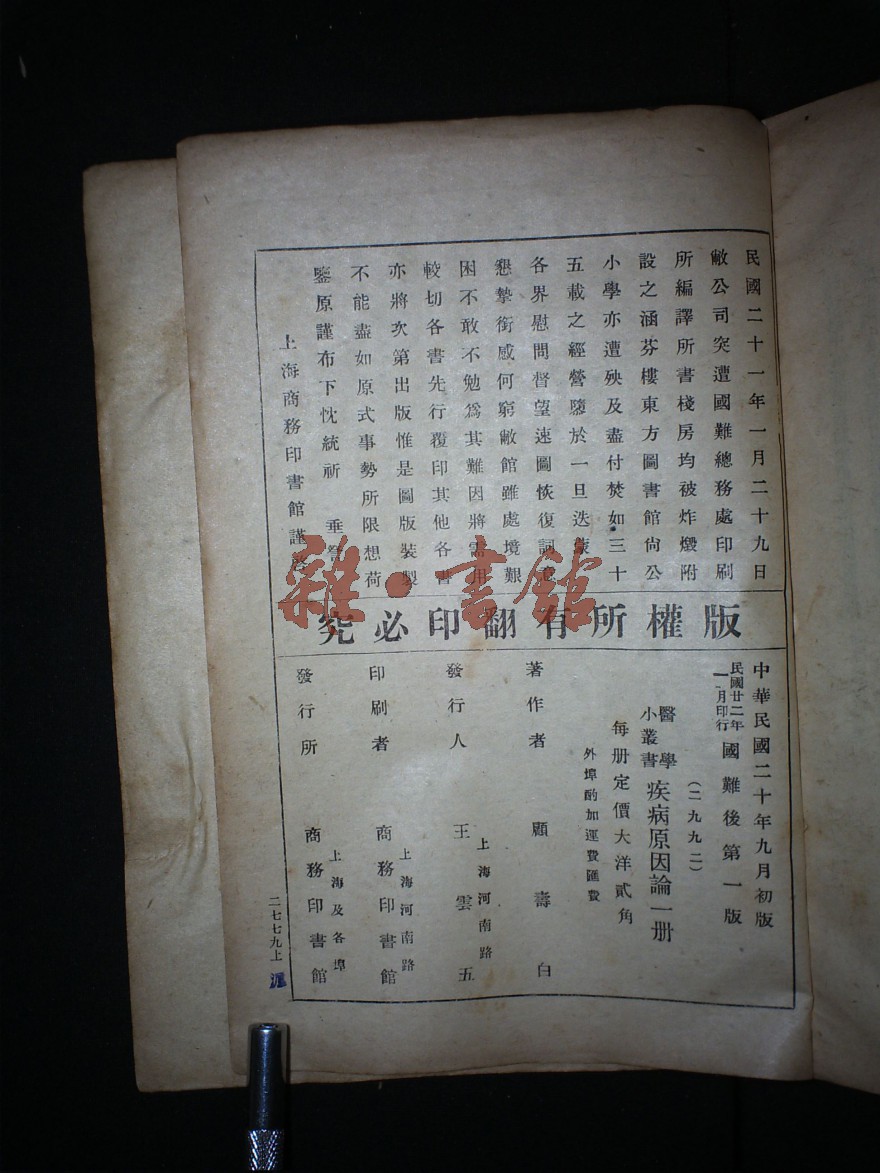 民國二十一年一月二十九日
敝公司突遭國難總務處印刷
所編譯所書棧房均被炸燬附
設之涵芬樓東方圖書館尙公
小學亦遭殃及盡付焚如三十
五載之經營隳於一旦迭
各界慰問督望速圖恢復詞
懇摯銜感何窮敝館雖處境艱
困不敢不勉爲其難因將需用
較切各書先行覆印其他各書
亦將次第出版惟是圖版裝製
不能盡如原式事勢所限想荷
鑒原謹布下忱統祈 垂
上海商務印書館謹
版權所有翻印必究
中華民國二十年九月初版
民國廿二年一月印行 國難後第一版
(二九九二)
醫學小叢書 疾病原因論一册
每册定價大洋貳角
外埠酌加運費匯費
著作者 顧壽白
發行人 上海河南路 王雲五
印刷者 上海河南路 商務印書館
發行所 上海及各埠 商務印書館
二七七九上
雜·書館